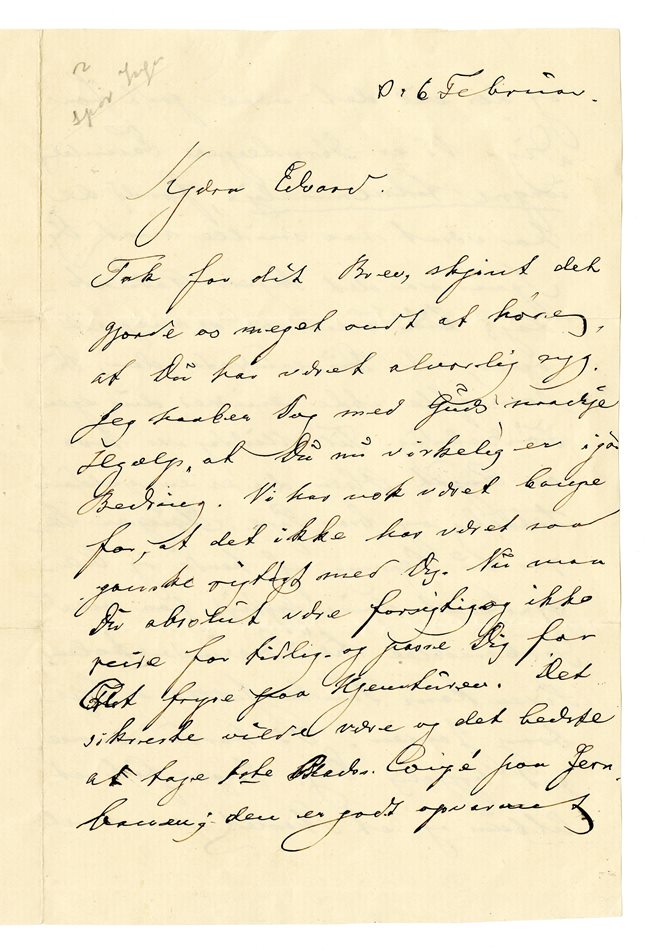 D: 6 Februar.
Kjære Edvard.
Tak for dit Brev, skjønt det
gjorde os meget ondt at høre,
at Du har været alvorlig syg.
Jeg haaber dog med Guds naadige
Hjælp, at Du nu virkelig er i god
Bedring. Vi har nok været bange
for, at det ikke har været saa
ganske rigtigt med Dig. Nu maa
Du absolut være forsigtig og ikke
reise for tidlig og passe Dig for
at fryse paa Hjemturen. Det
sikreste vilde være og det bedste
at tage 1ste Plads. Coupé paa Jern-
banen; den er godt opvarmet